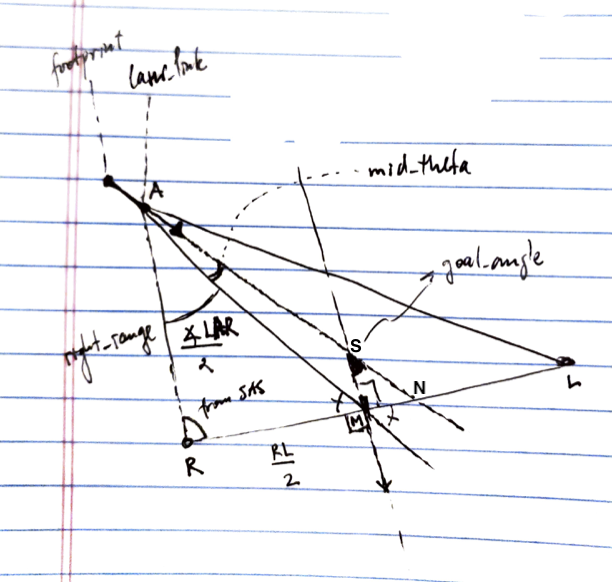 footprint
laser_link
A
mid_theta
goal_angle
right_range
∡LAR
2
S
N
L
from SAS
M
R
RL
2